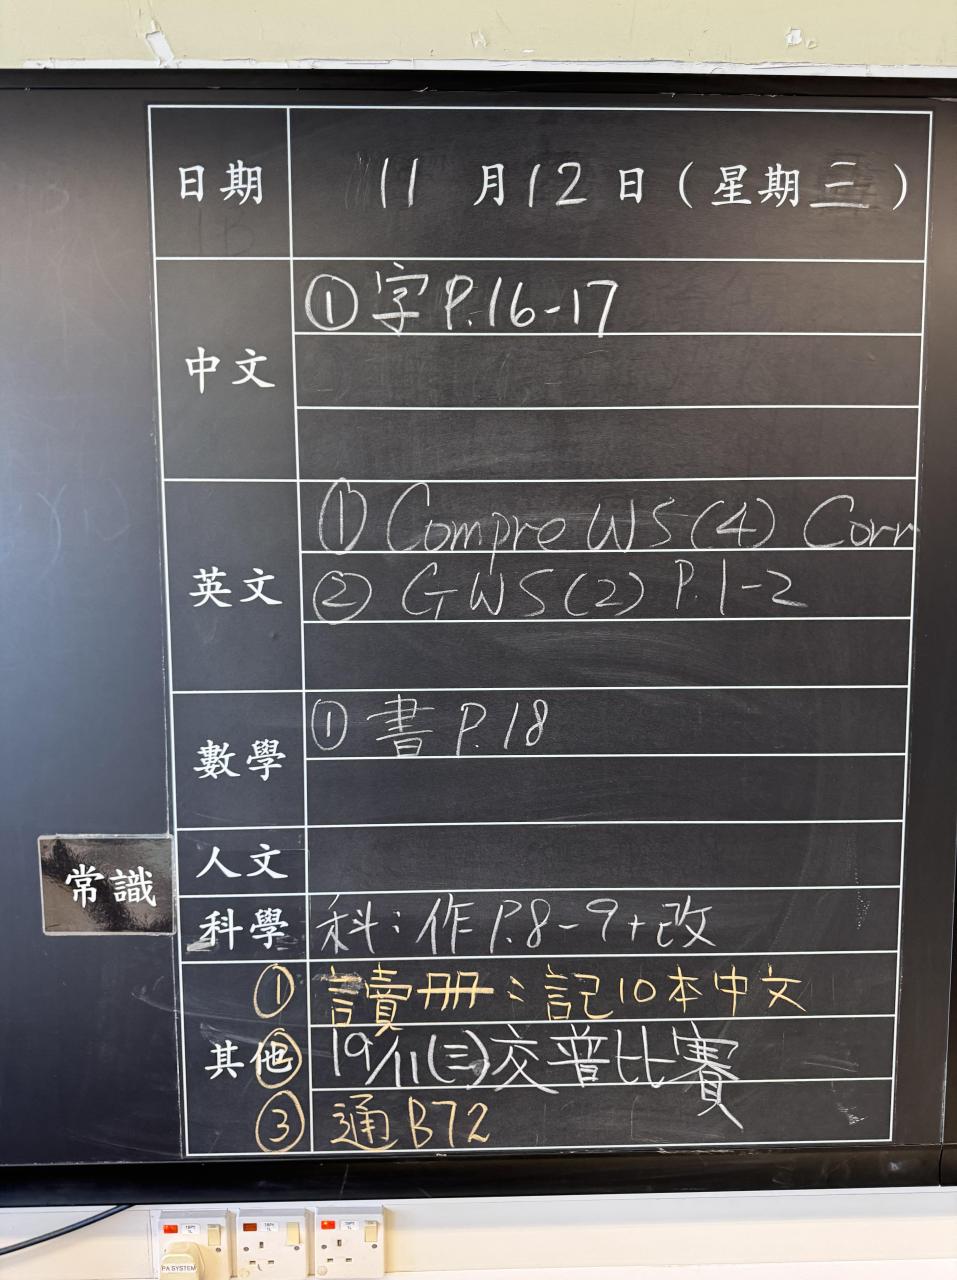 日期 11 月 12 日 ( 星期 三 )
中文 ① 字 P.16-17
英文 ① Compre WS(4) Corr
② GWS(2) P.1-2
數學 ① 書 P.18
人文
常識
科學 科：作 P.8-9+改
其他 ① 讀冊：記10本中文
② 19/11(三)交普比賽
③ 通 B72
PA SYSTEM